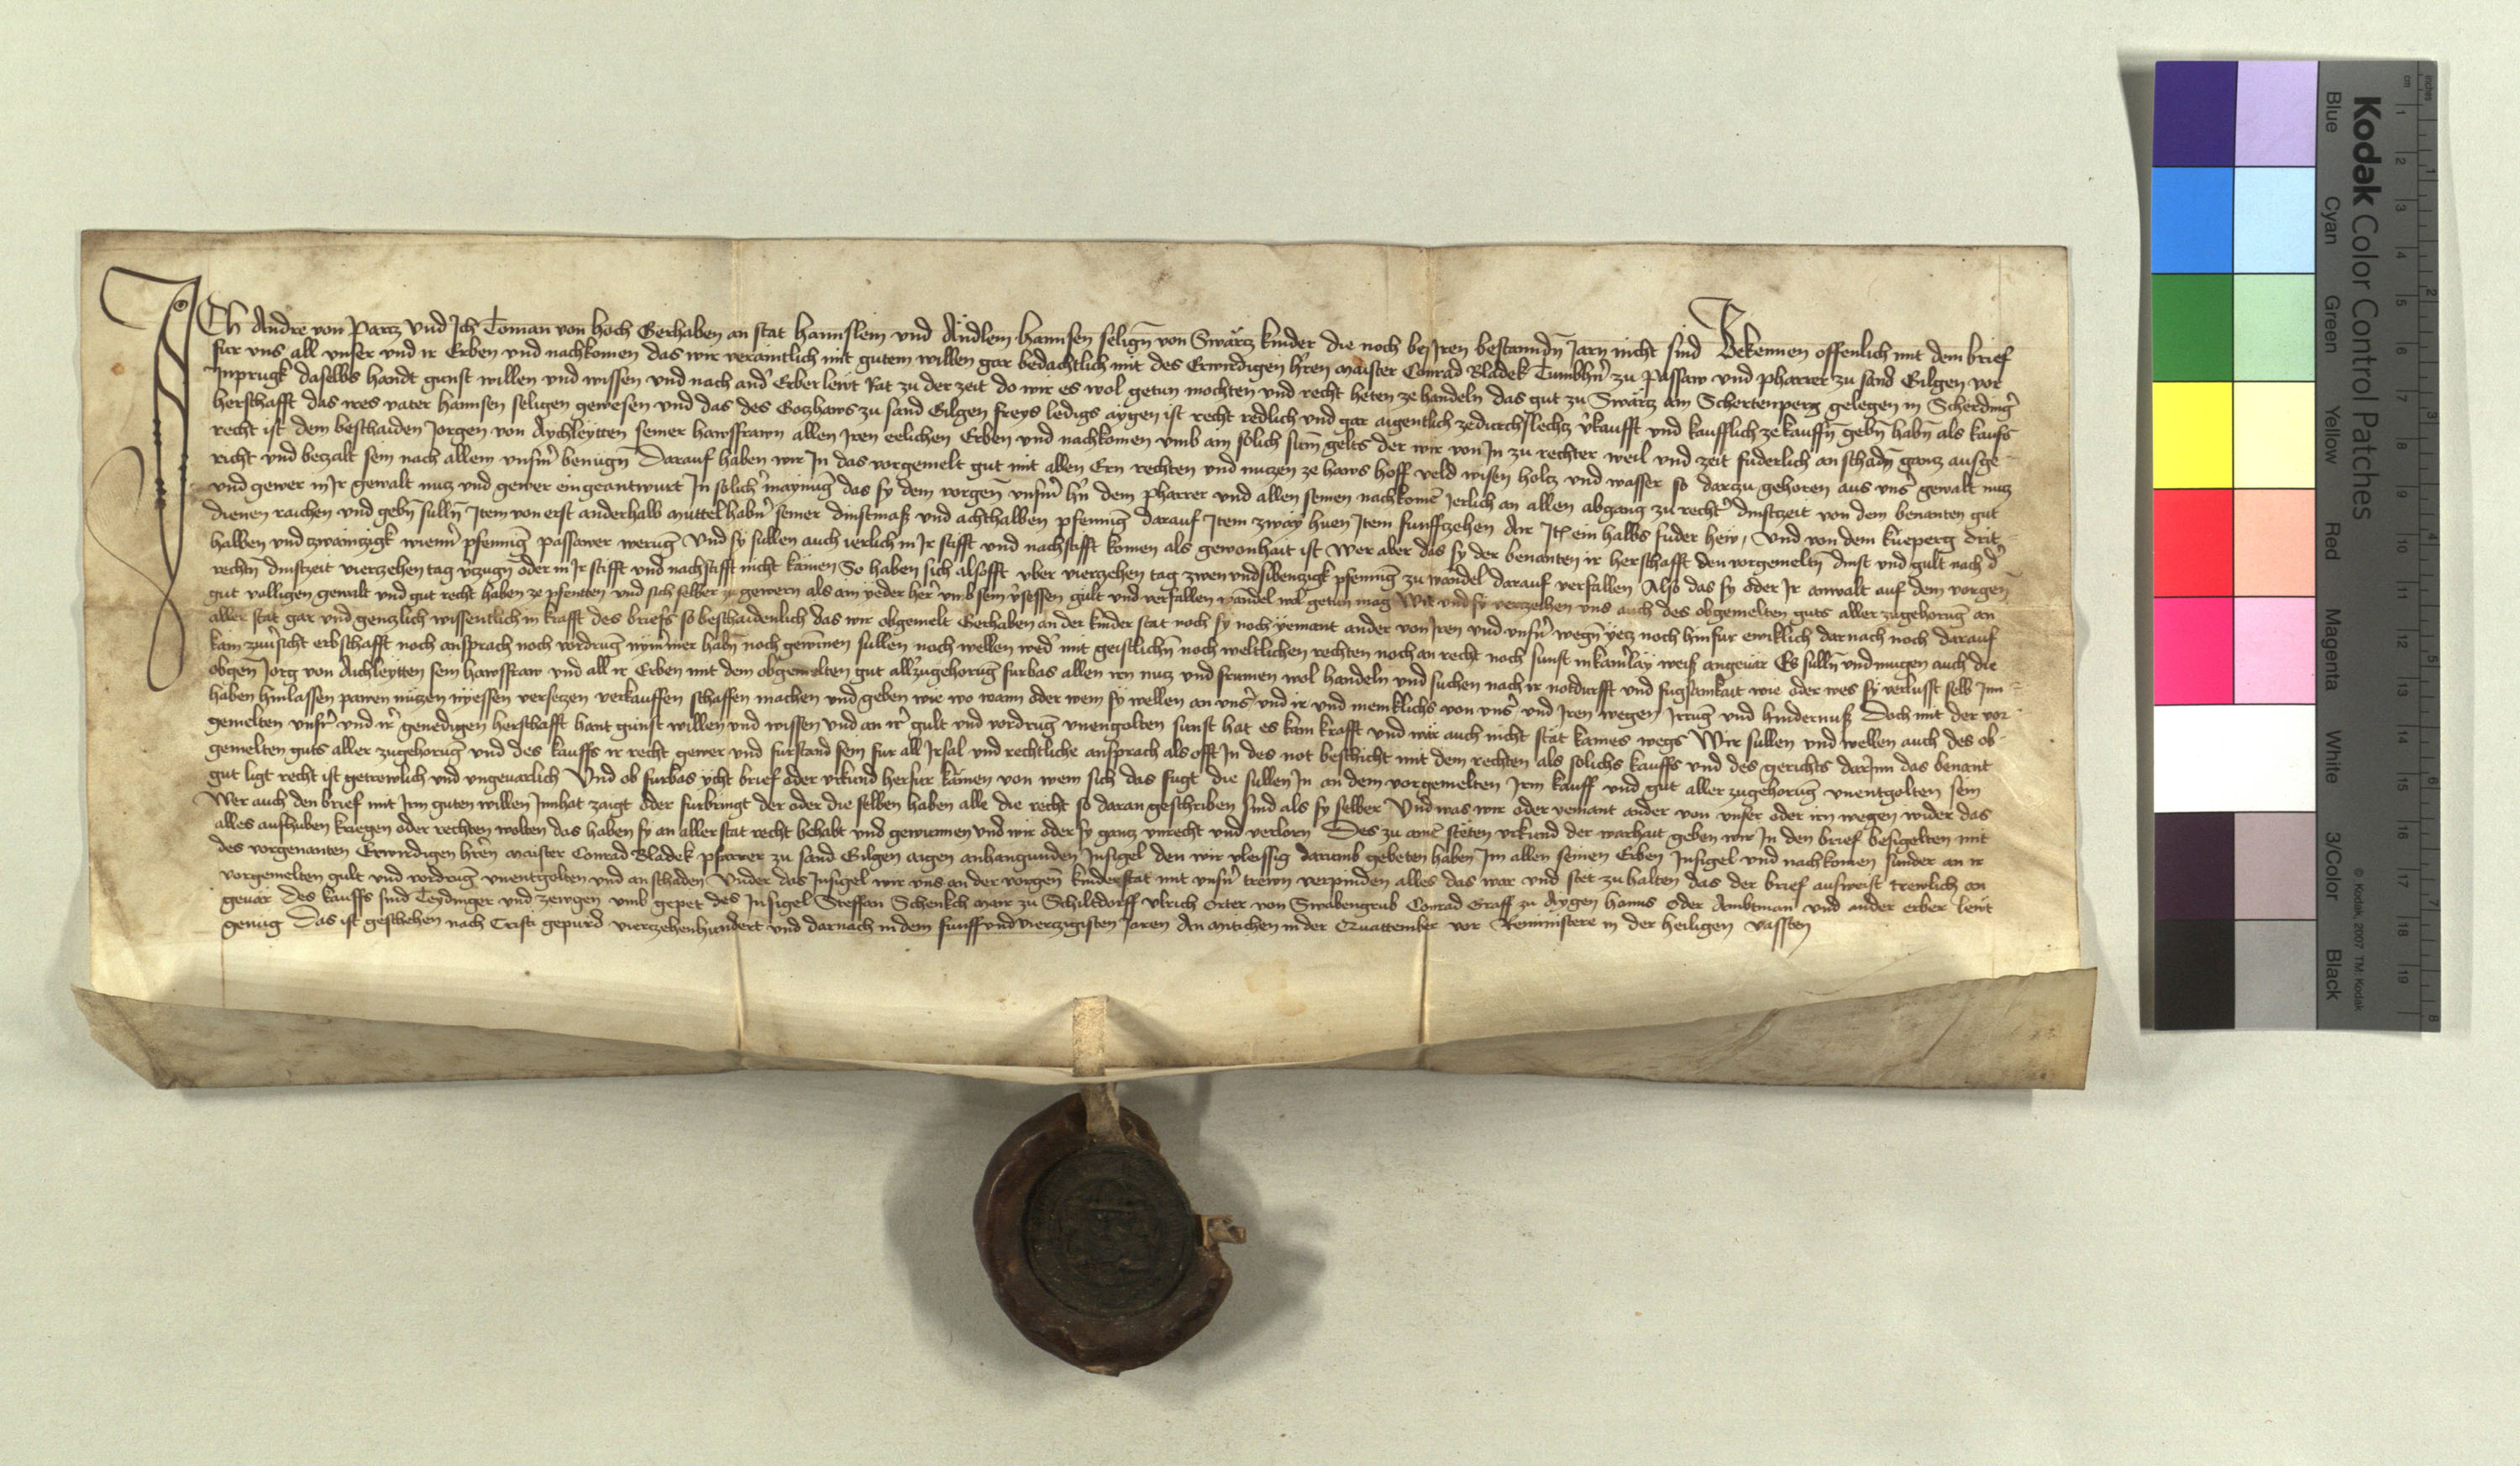 ICh Andre von Partz und Ich Toman von Hoch Gerhaben an stat Hannslein und Ändlein Hannsen selign von Swärtz kinder die noch bey Iren bestanndn Jarn nicht sind Bekennen offenlich mit dem brief
fur uns all unser und ir Erben und nachkomen das wir veraintlich mit gutem willen gar bedachtlich mit des Erwirdigen hren Maister Conrad Bladek Tumbhn zu Passaw und pharrer zu sand Gilgen vor
Inprugk daselbs handt gunst willen und wissen und nach and Erber lewt Rat zu der zeit do wir es wol getun mochten und recht heten ze handeln das gut zu Swärtz am Schertenperg gelegen in Scherding
herschafft das ires vater Hannsen seligen gewesen und das des Gotzhaws zu sand Gilgen freys ledigs aygen ist recht redlich und gar aigentlich zedurchslechtz vkaufft und kaufflich ze kauffn gebn habn als kaufs
recht ist dem beschaiden Jorgen von Aychleytten seiner hawsfrawn allen Iren eelichen Erben und nachkomen umb ain solich sum gelts der wir von In zu rechter weil und zeit fuderlich an schadn gantz ausge-
richt und betzalt sein nach allem unserm benugn Darauf haben wir In das vorgemelt gut mit allen Ern rechten und nutzen ze haws hoff veld wisen holtz und wasser so dartzu gehoren aus uns gewalt nutz
und gewer in Ir gewalt nutz und gewer eingeantwurt In solich maynung das sy dem vorgen unserm hn dem pharrer und allen seinen nachkome Jerlich an allen abgang zu recht dinstzeit von dem benanten gut
dienen raichen und gebn sulln Item von erst anderhalb muttel habn seiner dinstmass und achthalben pfennig darauf Item zway huen Item funfftzehen Air Itn ein halbs fuder hew, Und von dem kueperg drit-
halben und tzwaintzigk wienn pfennig passawer werug Und sy sullen auch ierlich in Ir stifft und nachstifft komen als gewonhait ist Wer aber das sy der benanten ir herschafft den vorgemeltn dinst und gult nach d
rechtn dinstzeit viertzehen tag vtzugn oder in Ir stifft und nachstifft nicht kämen So haben sich alsofft uber viertzehen tag zwen undsibentzigk pfennig zu wandel darauf verfallen Also das sy oder Ir anwalt auf dem vorgen
gut volligen gewalt und gut recht haben ze pfentten und sich selber zu gewern als ain yeder her umb sein vsessen gult und verfallen wandel wol getun mag Wir und sy vertzeihen uns auch des obgemelten guts aller zugehorug an
aller stat gar und gentzlich wissentlich in krafft des briefs so beschaidenlich das wir obgemelt Gerhaben an der kinder stat noch sy noch yemant ander von Iren und unsn wegn yetz noch hinfur ewiklich darnach noch darauf
kain zuvsicht erbschafft noch ansprach noch vordrug nymmer habn noch gewinnen sullen noch wellen wed mit geistlichn noch weltlichen rechten noch an recht noch sunst in kainlay weis angevär Es sulln und mugen auch die
obgen Jorg von Aichleytten sein hawsfraw und all ir Erben mit dem obgemelten gut all zugehorug furbas allen irn nutz und frumen wol handeln und suchen nach ir notdurfft und fugsamkait wie oder wes sy verlusst selb Inn
haben hinlassen pawen nutzen nyessen versetzen verkauffen schaffen machen und geben wie wo wann oder wem sy wellen an uns und ir und menniklichs von uns und Iren wegen Irrug und hindernuss Doch mit der vor-
gemelten unsr und ir genedigen herschafft hant gunst willen und wissen und an ir gult und vordrug unengolten sunst hat es kain krafft und wär auch nicht stät kaines wegs Wir sullen und wellen auch des ob-
gemelten guts aller zugehorug und des kauffs ir recht gewer und furstand sein fur all Irsal und rechtliche ansprach als offt In des not beschicht mit dem rechten als solichs kauffs und des gerichts darinn das benant
gut ligt recht ist getrewlich und ungevarlich Und ob furbas ycht brief oder urkund herfur kämen von wem sich das fugt die sullen In an dem vorgemelten Irm kauff und gut aller zugehorug unentgolten sein
Wer auch den brief mit Irm guten willen Innhat zaigt oder furbringt der oder die selben haben alle die recht so daran geschriben sind als sy selber Und was wir oder yemant ander von unser oder irn wegen wider das
alles aufhuben kriegen oder rechten wolten das haben sy an aller stat recht behabt und gewunnen und wir oder sy gantz unrecht und verlorn Des zu aine stëten urkund der warhait geben wir In den brief besigelten mit
des vorgenanten Erwirdigen hren Maister Conrad Bladek pfarrer zu sand Gilgen aigen anhangunden Insigel den wir vleissig darumb gebeten haben Im allen seinen Erben Insigel und nachkomen sunder an ir
vorgemelten gult und vordrug unentgolten und an schaden Under das Insigel wir uns an der vorgen kinder stat mit unsn trewn verpinden alles das war und stet zu halten das der brief ausweist trewlich an
gevär Des kauffs sind Teydinger und zewgen umb gepet des Insigel Steffan Schenkch Mair zu Schiltdorff Ulrich Orter von Swabengrub Conrad Graff zu Aygen Hanns Oder Ambtman und ander erber lewt
genug Das ist geschehen nach Cristi gepurd viertzehenhundert und darnach in dem funffundviertzigisten Jaren An Mitichen in der Quattember vor Reministere in der heiligen vassten
Kodak Color Control Patches
Blue Cyan Green Yellow Red Magenta White 3/Color Black
© Kodak, 2007 TM: Kodak
cm 1 2 3 4 5 6 7 8 9 10 11 12 13 14 15 16 17 18 19
inches 1 2 3 4 5 6 7 8